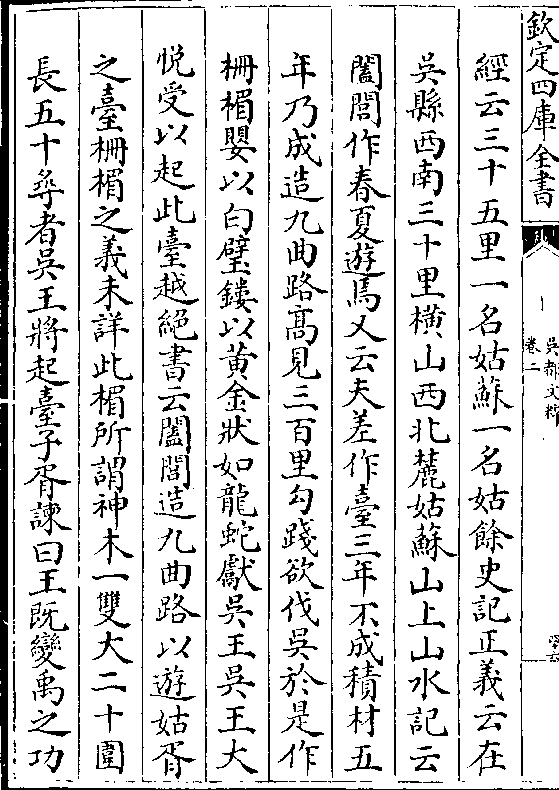 欽定四庫全書
吳都文粹
卷二
經云三十五里一名姑蘇一名姑餘史記正義云在
吳縣西南三十里橫山西北麓姑蘇山上山水記云
闔閭作春夏遊焉又云夫差作臺三年不成積材五
年乃成造九曲路髙見三百里勾踐欲伐吳於是作
柵楣嬰以白璧鏤以黃金狀如龍蛇獻吳王吳王大
悅受以起此臺越絕書云闔閭造九曲路以遊姑胥
之臺柵楣之義未詳此楣所謂神木一雙大二十圍
長五十尋者吳王將起臺子胥諫曰王既變禹之功